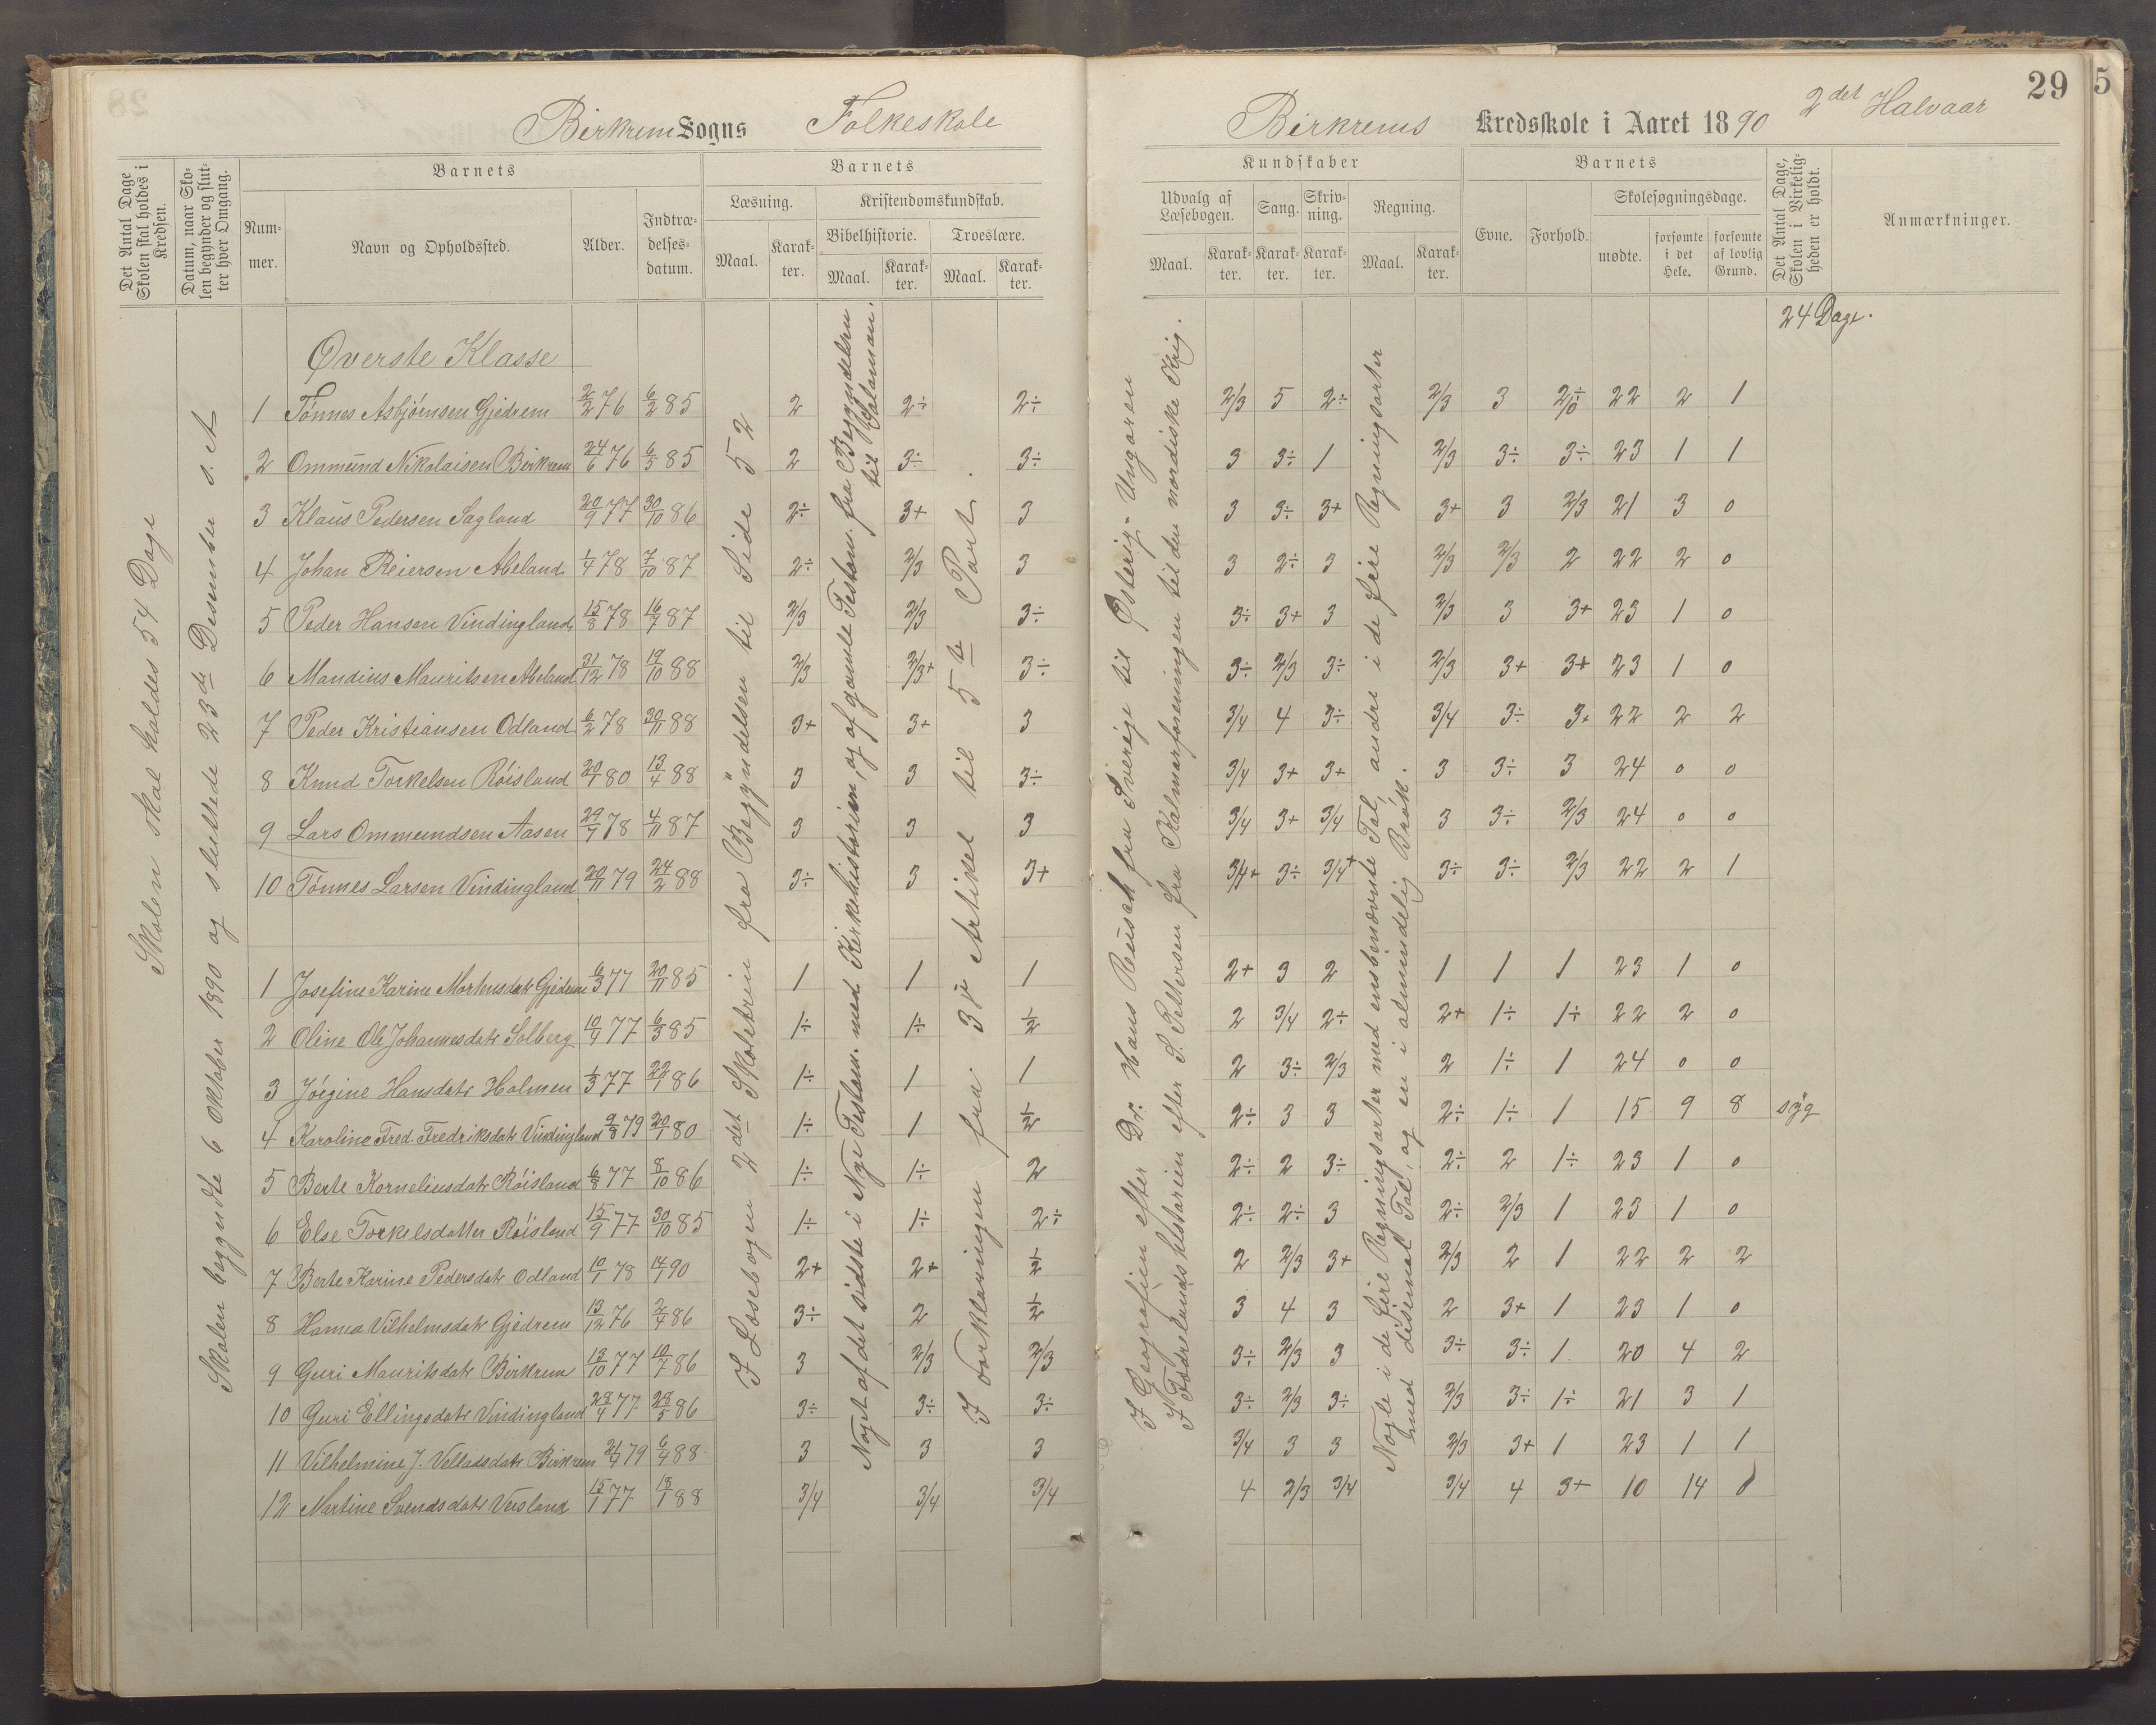 29
5
Birkrem Sogns Folkeskole
Birkrems Kredsskole i Aaret 1890 2det Halvaar
Det Antal Dage Skolen skal holdes i Kredsen.
Datum, naar Skolen begynder og slutter hver Omgang.
Barnets
Nummer.
Navn og Opholdssted.
Alder.
Indtrædelsesdatum.
Barnets
Læsning.
Maal.
Karakter.
Kristendomskundskab.
Bibelhistorie.
Maal.
Karakter.
Troeslære.
Maal.
Karakter.
Kundskaber
Udvalg af Læsebogen.
Maal.
Karakter.
Sang.
Karakter.
Skrivning.
Karakter.
Regning.
Maal.
Karakter.
Barnets
Evne.
Forhold.
Skolesøgningsdage.
mødte.
forsømte i det Hele.
forsømte af lovlig Grund.
Det Antal Dage, Skolen i Virkeligheden er holdt.
Anmærkninger.
24 Dage.
Skolen skal holdes 54 Dage
Skolen begyndte 6 Oktober 1890 og sluttede 23de Desember s. A
I Læsebogen 2det Skoletrin fra Begyndelsen til Side 52
Noget af det sidste i Nye Testam. med Kirkehistorien, og af gamle Testam. fra Begyndelsen til Salomon.
I Forklaringen fra 3je Artikel til 5te Part.
I Geografien efter Dr. Hans Reusch fra Sverige til Østerig-Ungaren
I Fædrelandshistorien efter S. Pettersen fra Kalmarforeningen til den nordiske Krig.
Nogle i de fire Regningsarter med ensbenævnte Tal, andre i de fire Regningsarter
med desimal Tal, og en i almindelig Brøk.
Øverste Klasse
1 Tønnes Asbjørnsen Gjedrem 2/2 76 6/2 85 2 2÷ 2÷ 2/3 5 2÷ 2/3 3 22 2 1
2 Ommund Nikolaisen Birkrem 24/6 76 6/3 85 2 3÷ 3÷ 3 3÷ 1 2/3 3÷ 3÷ 23 1 1
3 Klaus Pedersen Sagland 20/9 77 30/10 86 2÷ 3+ 3 3 3÷ 3+ 3+ 3 2/3 21 3 0
4 Johan Reiersen Abeland 1/4 78 7/10 87 2÷ 2/3 3 3 2÷ 3 2/3 2/3 2 22 2 0
5 Peder Hansen Vindingland 15/8 78 16/7 87 2/3 2/3 3÷ 3÷ 3+ 3 2/3 3 3+ 23 1 0
6 Mandius Mauritsen Abeland 31/12 78 19/10 88 2/3 2/3+ 3÷ 3÷ 2/3 3÷ 2/3 3+ 3+ 23 1 0
7 Peder Kristiansen Odland 6/2 78 30/11 88 3+ 3+ 3 3/4 4 3÷ 3/4 3÷ 3+ 22 2 2
8 Knud Torkelsen Røisland 20/1 80 13/4 88 3 3 3÷ 3/4 3+ 3+ 3 3÷ 3 24 0 0
9 Lars Ommundsen Aasen 29/7 78 4/11 87 3 3 3 3/4 3+ 3/4 3 3÷ 2/3 24 0 0
10 Tønnes Larsen Vindingland 20/11 79 24/2 88 3÷ 3 3+ 3/4+ 3÷ 3/4+ 3÷ 3÷ 2/3 22 2 1
1 Josefine Karine Mortensdatr Gjedrem 6/3 77 20/11 85 1 1 1 2+ 3 2 1 1 1 23 1 0
2 Oline Ole Johannesdatr Solberg 10/9 77 6/3 85 1÷ 1÷ 1/2 2 3/4 2÷ 2+ 1÷ 1÷ 22 2 0
3 Jørgine Hansdatr Holmen 1/3 77 22/1 86 1÷ 1 1 2 3÷ 2/3 2 1÷ 1 24 0 0
4 Karoline Fred. Fredriksdatr Vindingland 9/8 79 20/1 80 1÷ 1 1/2 2÷ 3 3 2÷ 1÷ 1 15 9 8 syg
5 Berte Korneliusdatr Røisland 6/8 77 8/10 86 1÷ 1÷ 2 2÷ 2 3÷ 2÷ 2 1÷ 23 1 0
6 Else Torkelsdatter Røisland 15/9 77 30/10 85 1÷ 1÷ 2÷ 2÷ 2÷ 3 2÷ 2/3 1 23 1 0
7 Berte Karine Pedersdatr Odland 10/1 78 14/7 90 2+ 2+ 1/2 2 2/3 3+ 2/3 2 1 22 2 2
8 Hanna Vilhelmsdatr Gjedrem 13/12 76 2/4 86 3÷ 2 1/2 3 4 3 2 3+ 1 23 1 0
9 Guri Mauritsdatr Birkrem 13/10 77 10/7 86 3 2/3 2/3 3÷ 2/3 3 3÷ 3÷ 1 20 4 2
10 Guri Ellingsdatr Vindingland 28/4 77 28/5 86 3÷ 3÷ 3÷ 3÷ 2/3 3÷ 2/3 3÷ 1÷ 21 3 1
11 Vilhelmine J. Velladsdatr Birkrem 21/4 79 6/4 88 3 3 3 3/4 3 3 2/3 3+ 1 23 1 1
12 Martine Svendsdatr Veisland 15/1 77 13/1 88 3/4 3/4 3/4 4 2/3 3/4 3/4 4 3+ 10 14